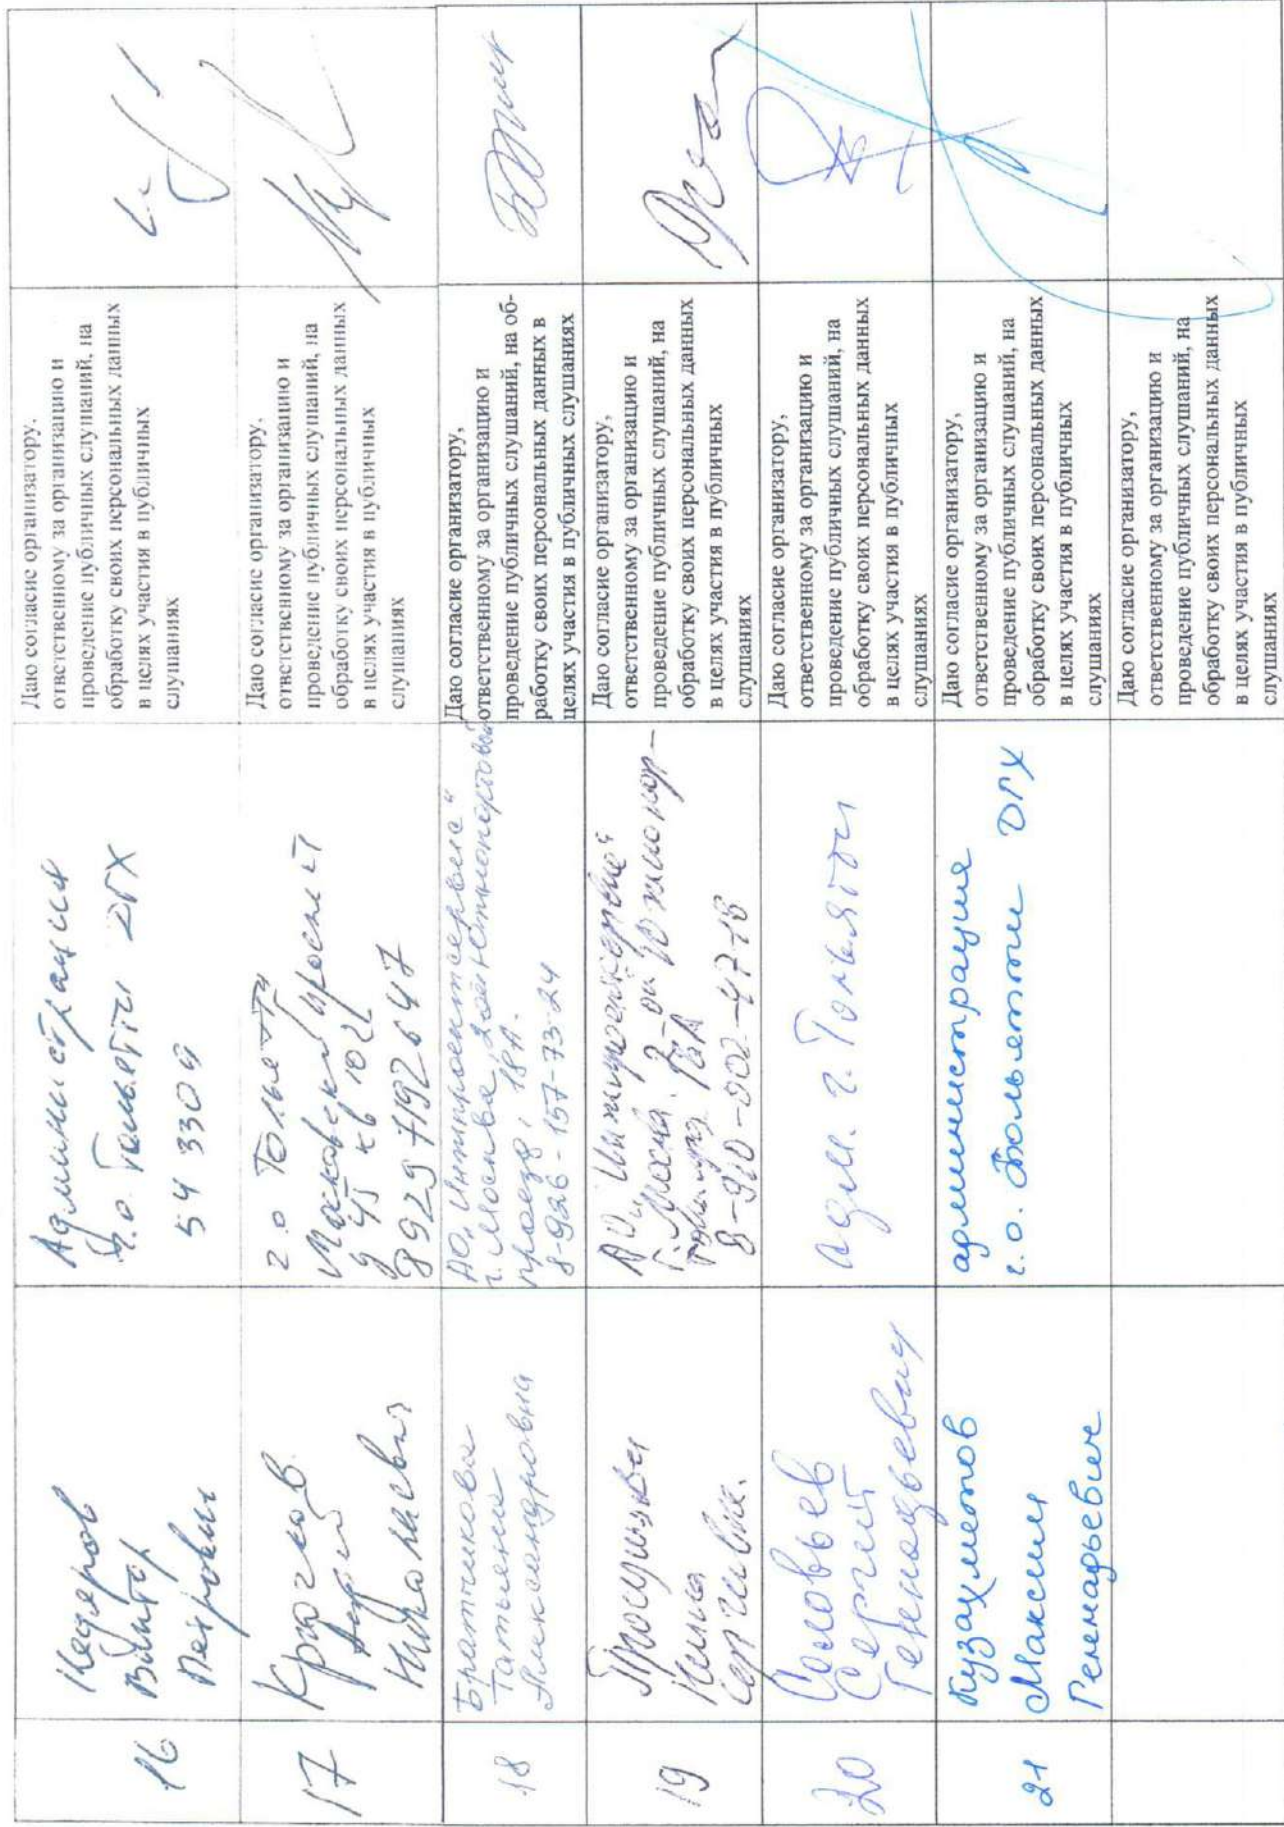 16
Виктор
Петрович
Администрация
г.о. Тольятти
54 33 09
Даю согласие организатору,
ответственному за организацию и
проведение публичных слушаний, на
обработку своих персональных данных
в целях участия в публичных
слушаниях
17
г.о Тольятти
Московский проспект
8929 7192647
Даю согласие организатору,
ответственному за организацию и
проведение публичных слушаний, на
обработку своих персональных данных
в целях участия в публичных
слушаниях
18
Братчикова
Татьяна
Александровна
АО „Интпроектсервис“
г. Москва,
проезд, 18А.
8-926-157-73-24
Даю согласие организатору,
ответственному за организацию и
проведение публичных слушаний, на об-
работку своих персональных данных в
целях участия в публичных слушаниях
19
АО
г. Москва, 2-ой Южнопор-
8-910-002-47-18
Даю согласие организатору,
ответственному за организацию и
проведение публичных слушаний, на
обработку своих персональных данных
в целях участия в публичных
слушаниях
20
Соловьев
Сергей
Геннадьевич
адм. г. Тольятти
Даю согласие организатору,
ответственному за организацию и
проведение публичных слушаний, на
обработку своих персональных данных
в целях участия в публичных
слушаниях
21
Кузахметов
Максим
Геннадьевич
администрация
г.о. Тольятти ДГХ
Даю согласие организатору,
ответственному за организацию и
проведение публичных слушаний, на
обработку своих персональных данных
в целях участия в публичных
слушаниях
Даю согласие организатору,
ответственному за организацию и
проведение публичных слушаний, на
обработку своих персональных данных
в целях участия в публичных
слушаниях